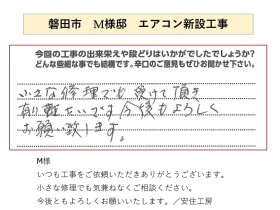 磐田市　M様邸　エアコン新設工事
今回の工事の出来栄えや段どりはいかがでしたでしょうか？
どんな些細な事でも結構です。辛口のご意見もぜひお聞かせ下さい。
小さな修理でも受けて頂き
有り難いです今後もよろしく
お願い致します。
M様
いつも工事をご依頼いただきありがとうございます。
小さな修理でも気兼ねなくご相談ください。
今後ともよろしくお願いいたします。／安住工房